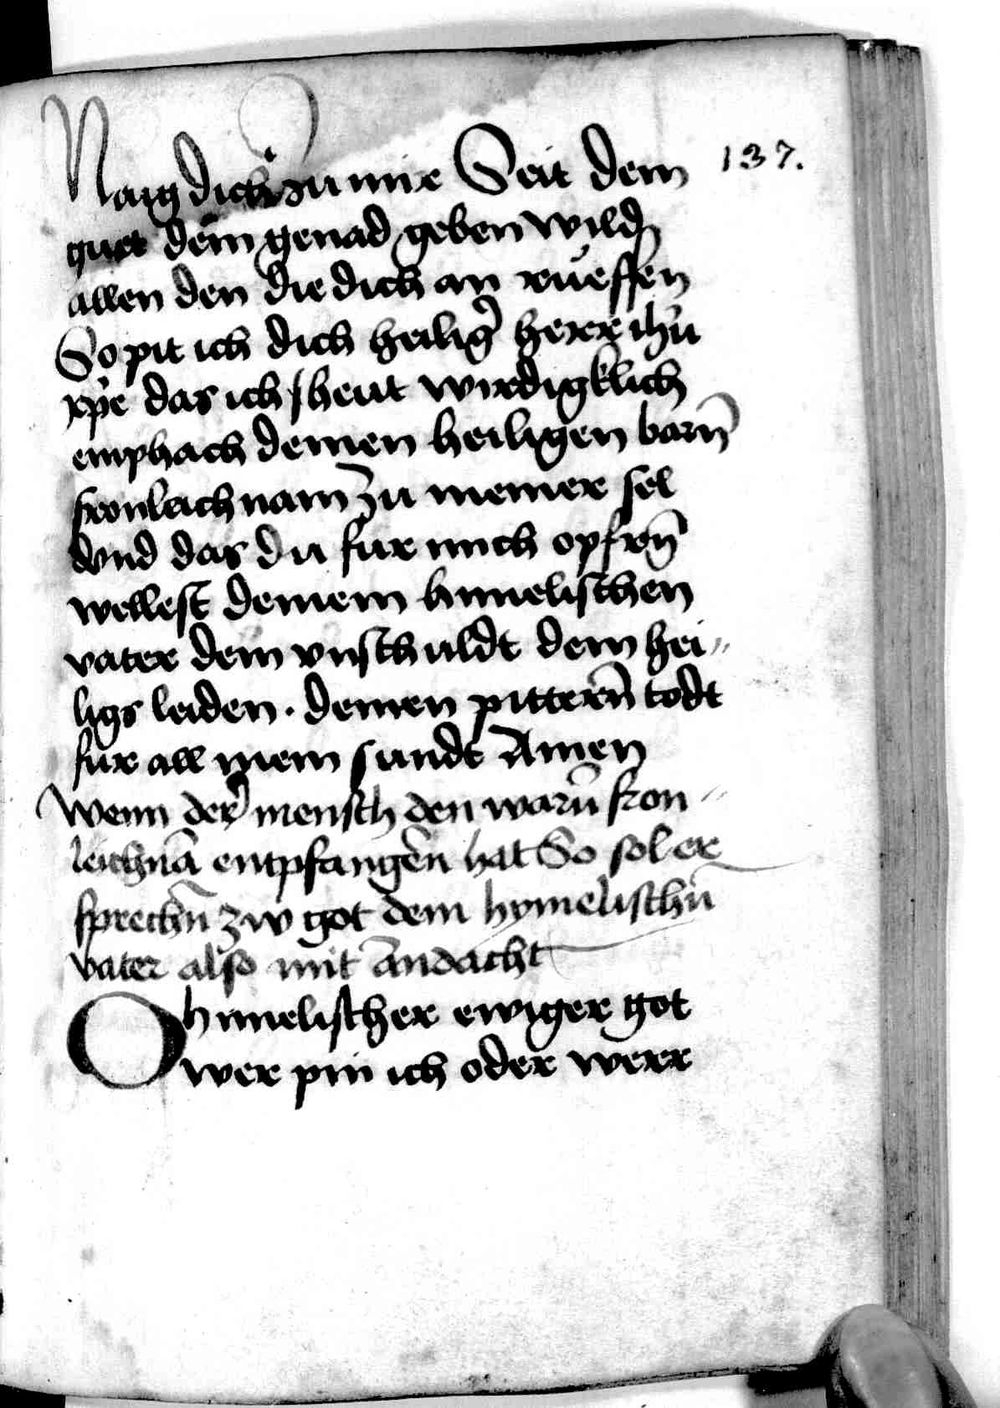 137.
Naig dich zu mir Seit dem
guet dein genad geben wild
allen den die dich an rueffen
So pit ich dich heilig̃ herr ih̃u
xp̃e das ich heut wirdigklich
emphach deinen heiligen warn̄
fronleichnam zu meiner sel
vnd das du fur mich opfrn̄
wellest deinem himelischen
vater dein vnschuldt dein hei„
ligs leiden . deinen pittern̄ todt
fur all mein sundt Amen
Wenn der mensch den warn̄ fron„
leichnā entpfangen hat So sol er
sprechn̄ zw got dem hymelischn̄
vater also mit andacht
O himelischer ewiger got
wer pin ich oder werr